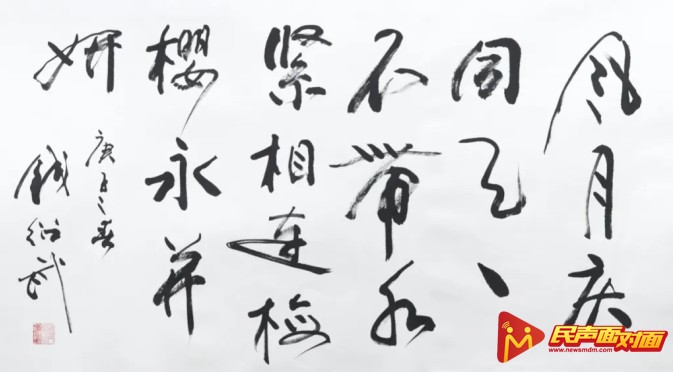 风月庆
同天
带水
紧相连梅
樱永并
妍
庚子之春
钱绍武
民声面对面
www.newsmdm.com